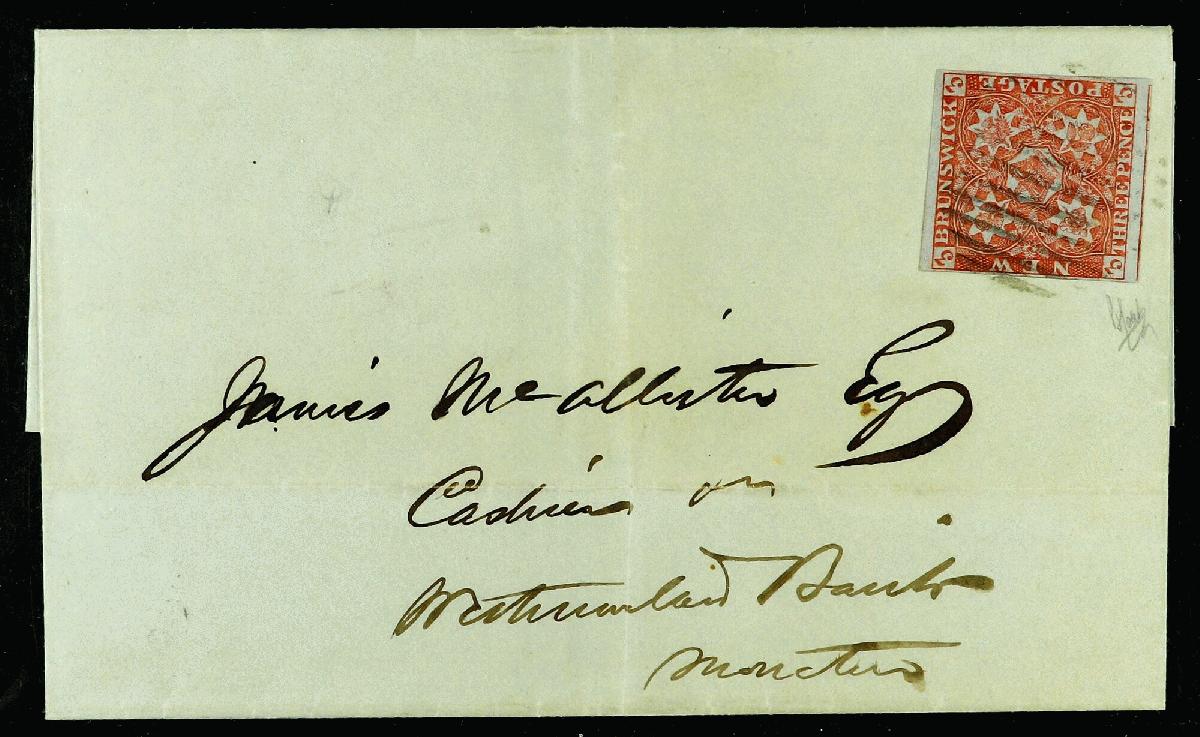 NEW
BRUNSWICK
POSTAGE
THREE PENCE
3
3
3
3
James McAllister Esq
Cashier
Westmorland Bank
Moncton